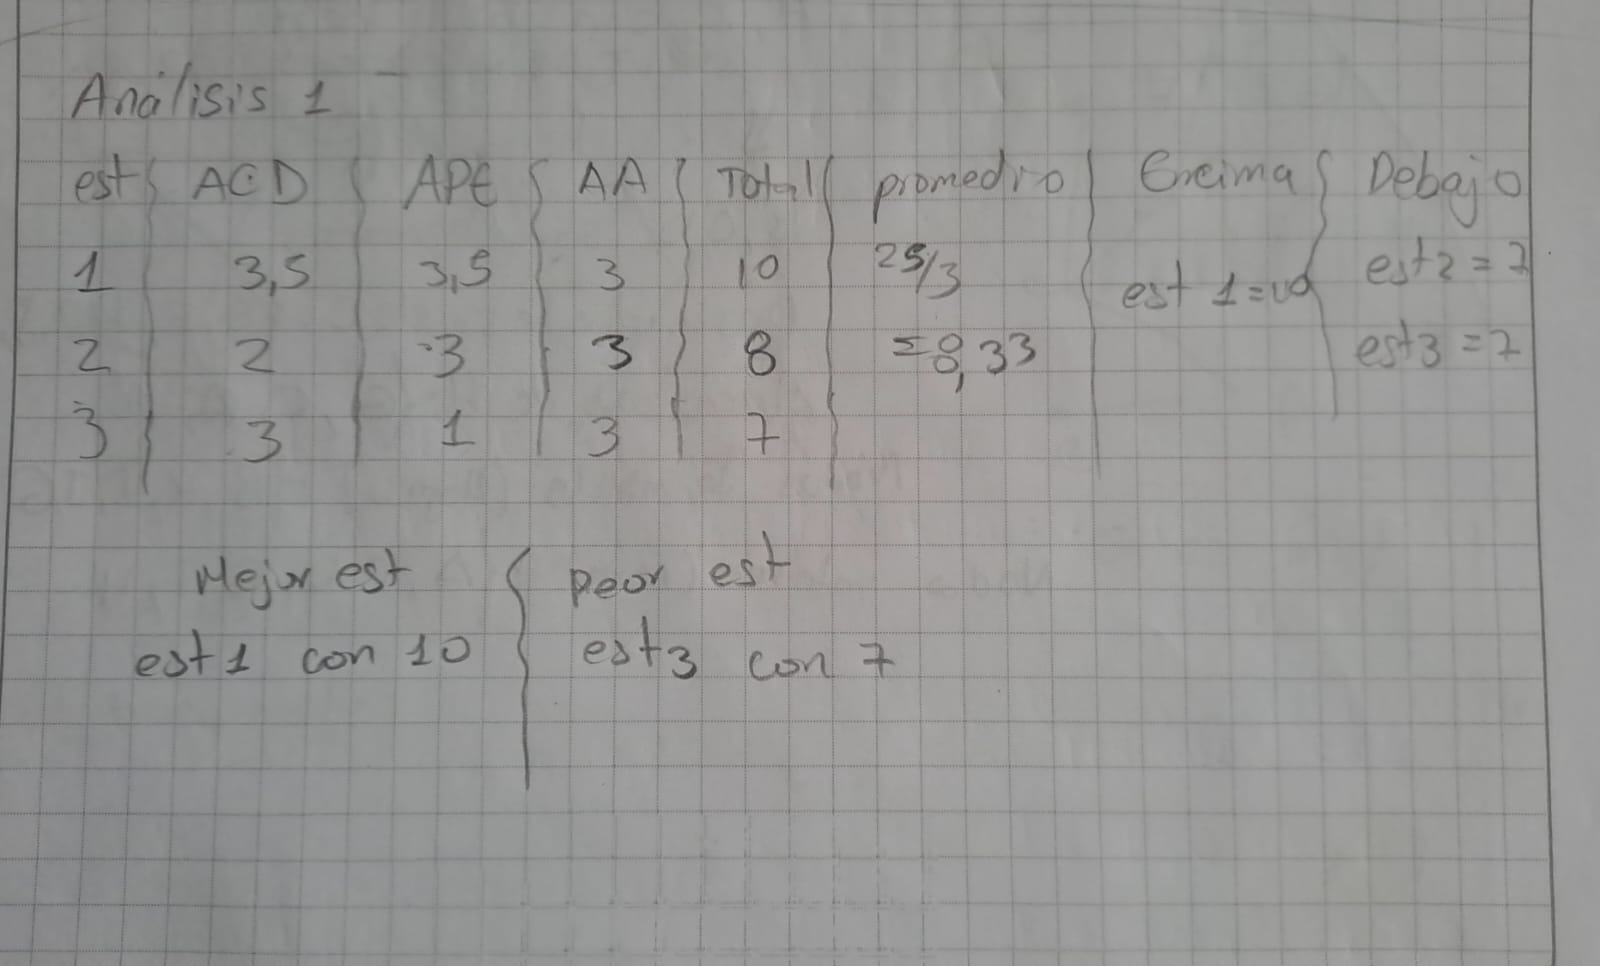 Análisis 1
est ACD APE AA Total promedio Encima Debajo
1 3,5 3,5 3 10 25/3 est 1=10 est2 = 7
2 2 3 3 8 = 8,33 est3 = 7
3 3 1 3 7
Mejor est peor est
est1 con 10 est3 con 7